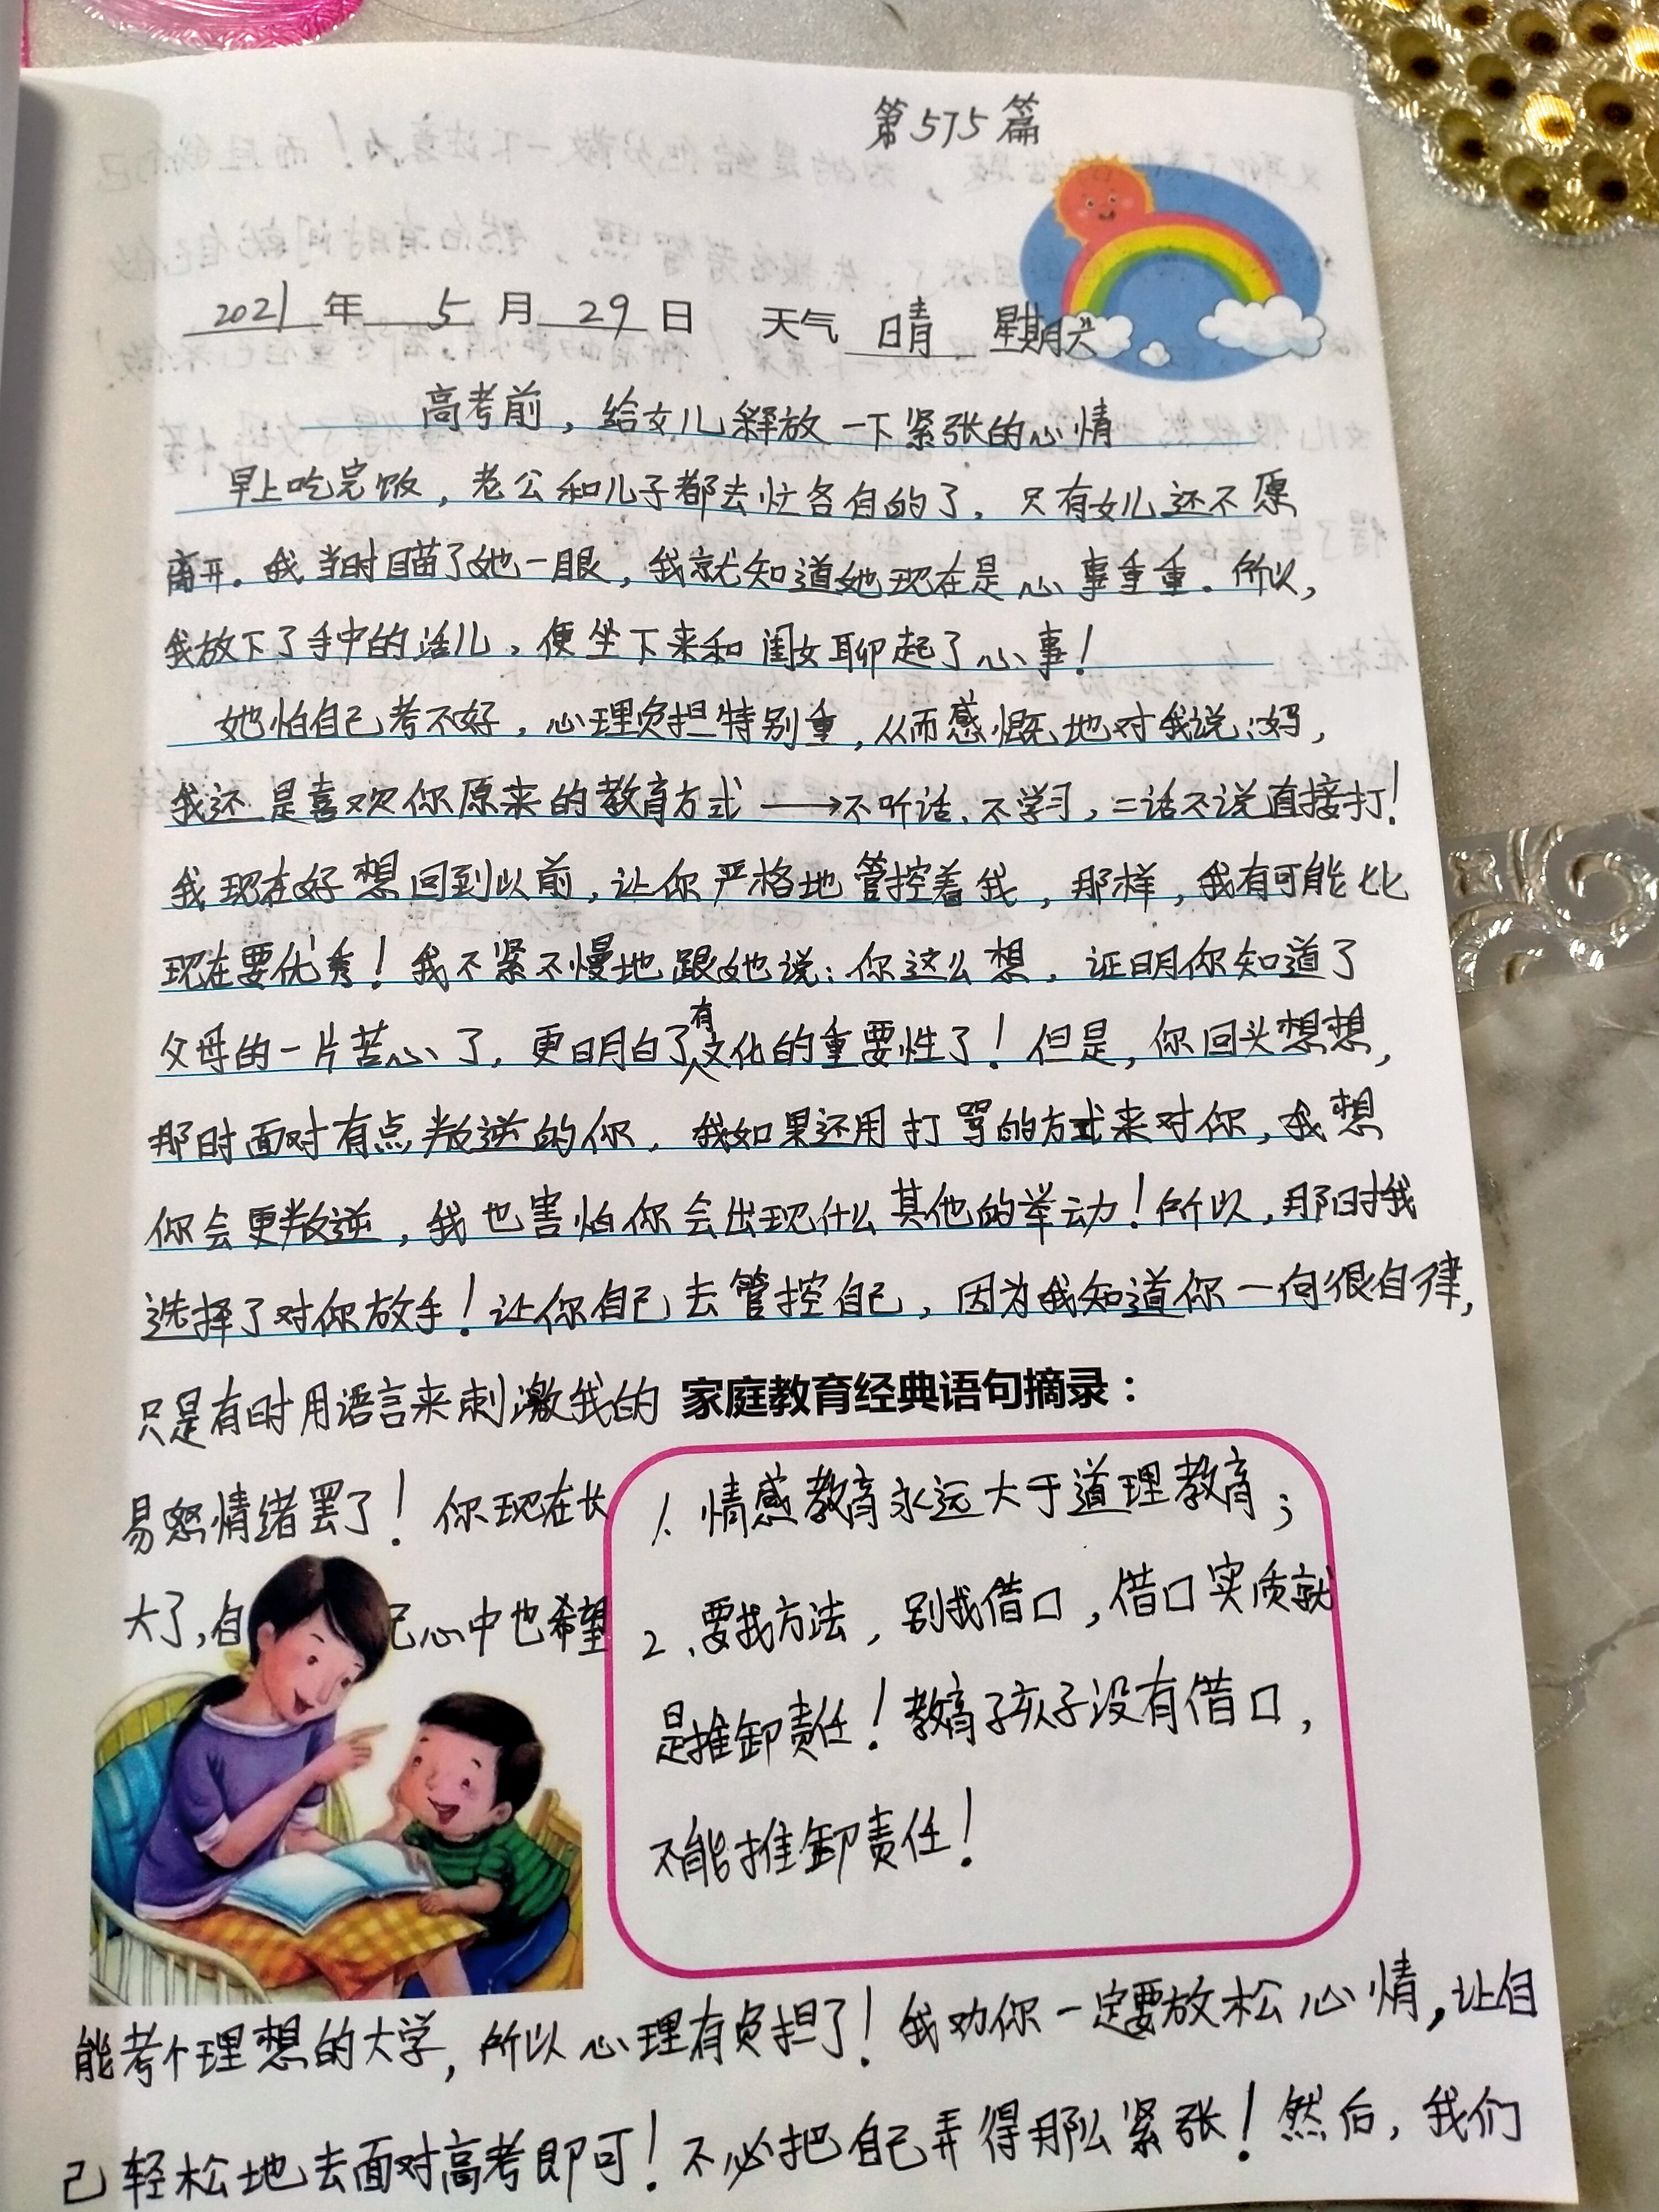 第575篇
2021年5月29日 天气 晴 星期六
高考前，给女儿释放一下紧张的心情
早上吃完饭，老公和儿子都去忙各自的了，只有女儿还不愿
离开。我当时瞄了她一眼，我就知道她现在是心事重重。所以，
我放下了手中的活儿，便坐下来和闺女聊起了心事！
她怕自己考不好，心理负担特别重，从而感慨地对我说：妈，
我还是喜欢你原来的教育方式——→不听话、不学习，二话不说直接打！
我现在好想回到以前，让你严格地管控着我，那样，我有可能比
现在要优秀！我不紧不慢地跟她说：你这么想，证明你知道了
父母的一片苦心了，更明白了有文化的重要性了！但是，你回头想想，
那时面对有点叛逆的你，我如果还用打骂的方式来对你，我想
你会更叛逆，我也害怕你会出现什么其他的举动！所以，那时我
选择了对你放手！让你自己去管控自己，因为我知道你一向很自律，
只是有时用语言来刺激我的
易怒情绪罢了！你现在长
大了，自己心中也希望
家庭教育经典语句摘录：
1、情感教育永远大于道理教育；
2、要找方法，别找借口，借口实质就
是推卸责任！教育孩子没有借口，
不能推卸责任！
能考个理想的大学，所以心理有负担了！我劝你一定要放松心情，让自
己轻松地去面对高考即可！不必把自己弄得那么紧张！然后，我们